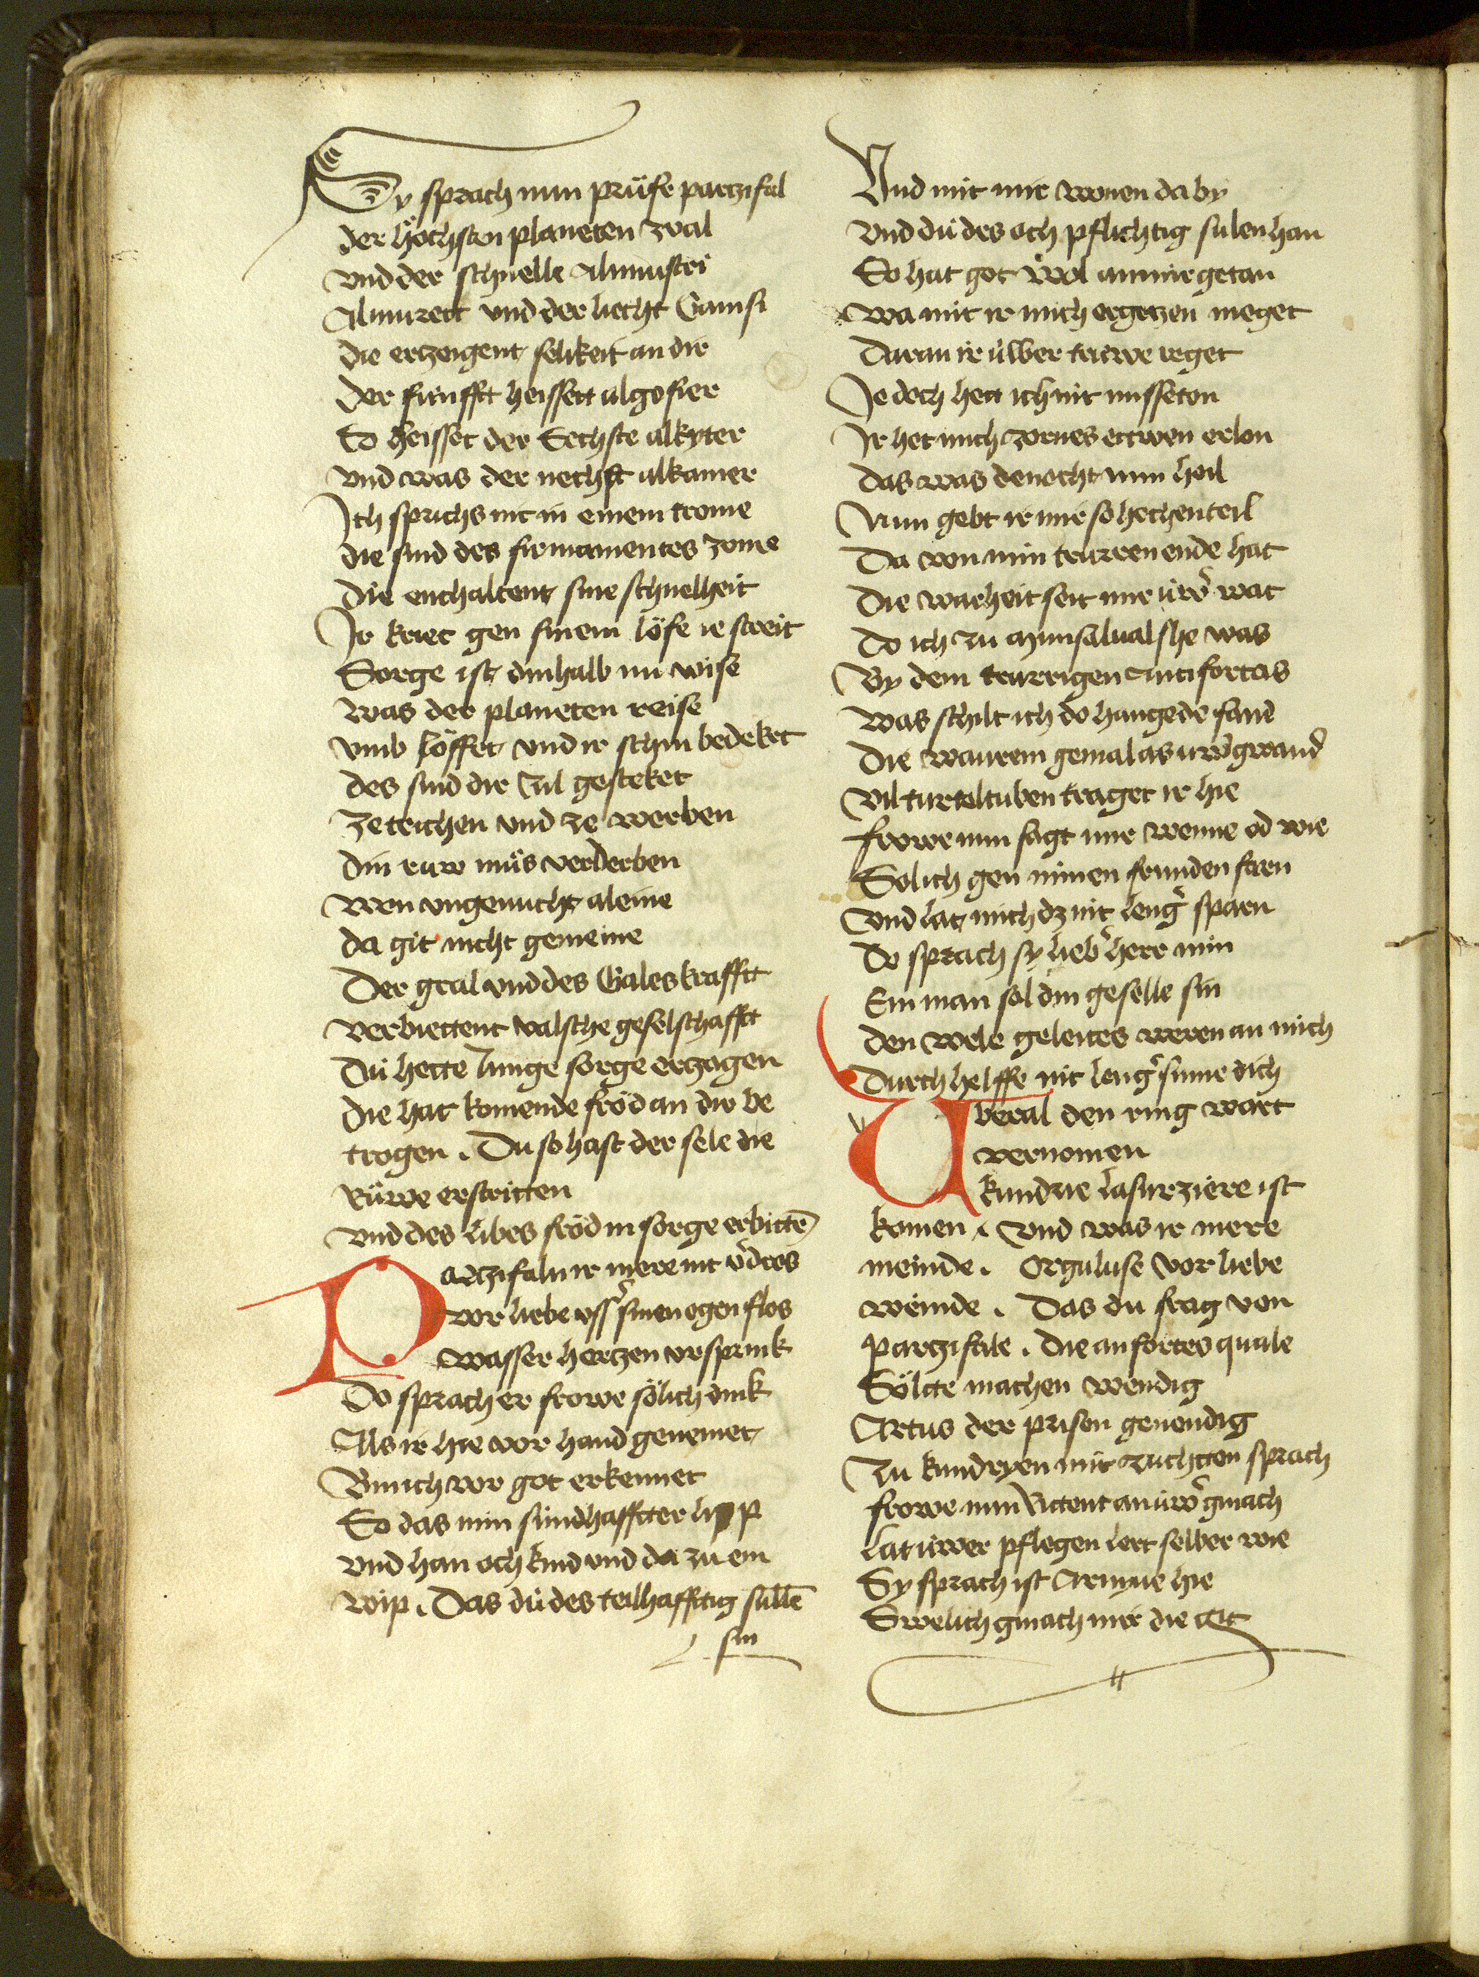 Sy sprach nun prüfe partzifal
der höchsten planeten zval
vnd der schnelle Almustri
Almurett vnd der liecht Samsi
die ertzeigent selikeit an dir
Der fünfft heissett algofier
So heisset der Sechste alkyter
vnd was der nechst alkamer
Ich sprichs nit in einem trome
die sind des firmamentes zome
die enthaltent sine schnelheit
Ir kriet gen sinem löfe ie streit
Sorge ist dinhalb nu wise
was der planeten reise
vmb löffet vnd ir schin bedeket
des sind dir zil gesteket
ze reichen vnd ze werben
din ruw müs verderben
wen vngenucht aleine
da git nicht gemeine
Der gral vnd des Gales krafft
verbiettent valsche geselschafft
Du hette Iunge sorge erzogen
die hat komende fröd an dir be
trogen . Du so hast der sele die
Rüwe erstritten
vnd des libes fröd in sorge erbitte͂
Partzifaln ir mere nit v̓dros
vor liebe uss sinen ogen flos
wasser hertzen vrsprink
Do sprach er frowe sölich dink
Als ir hie vor hand genemet
Bin ich vor got erkennet
So das min sündhaffter lip
vnd han och kind vnd da zu ein
wip . Das dü des teilhafftig sülle͂
sin
Vnd mit mir wonen da by
vnd dü des och pflichtig sulen han
So hat got wol an mir getan
wa mit ir mich ergetzen meget
daran ir üwer trüwe reget
Ie doch hett ich nit misseton
Ir het mich zornes ettwen erlon
das was denocht min heil
Nun gebt ir mir so hechen teil
Da von min truren ende hat
Die warheit seit mir üw̓ wat
Do ich zu Munsaluashe was
By dem trurrigen Antifortas
was schilt ich do hangede fand
die warem gemal as uw̓ gwand
vil turteltuben traget ir hie
frowe nun sagt mir wenne od wie
Solich gen minen frunden faren
vnd lat mich dz nit leng̓ sparn
Do sprach sy lieb̓ herr min
Ein man sol din geselle sin
den wele geleites weren an mich
durch helffe nit leng̓ sume dich
Vberal den ring wart
vernomen
kundrie lasurziere ist
komen . vnd was ir mere
meinde . Orguluse vor liebe
weinde . Das du frag von
Partzifale . die anfortes quale
Sölte machen wendig
Artus der prisen genendig
zu kundryen mit zuchtten sprach
frowe nun Rittent an üw̓ gmach
lat üwer pflegen lert selber wie
Sy sprach ist Arniue hie
Swelich gmach mir die git